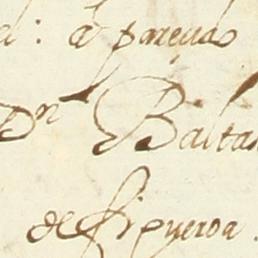 d: a parecio
Dn Baltas
de figueroa.